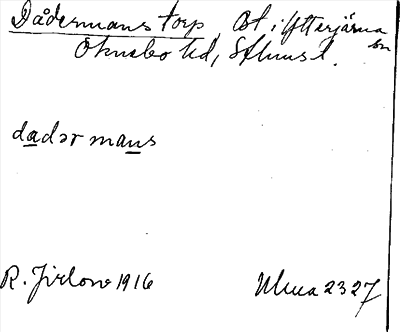 Dådermanstorp, Bt, i Ytterjärna sn
Öknebo hd, Sthms l.
dadərmans
R. Jirlow 1916
Ulma 2327